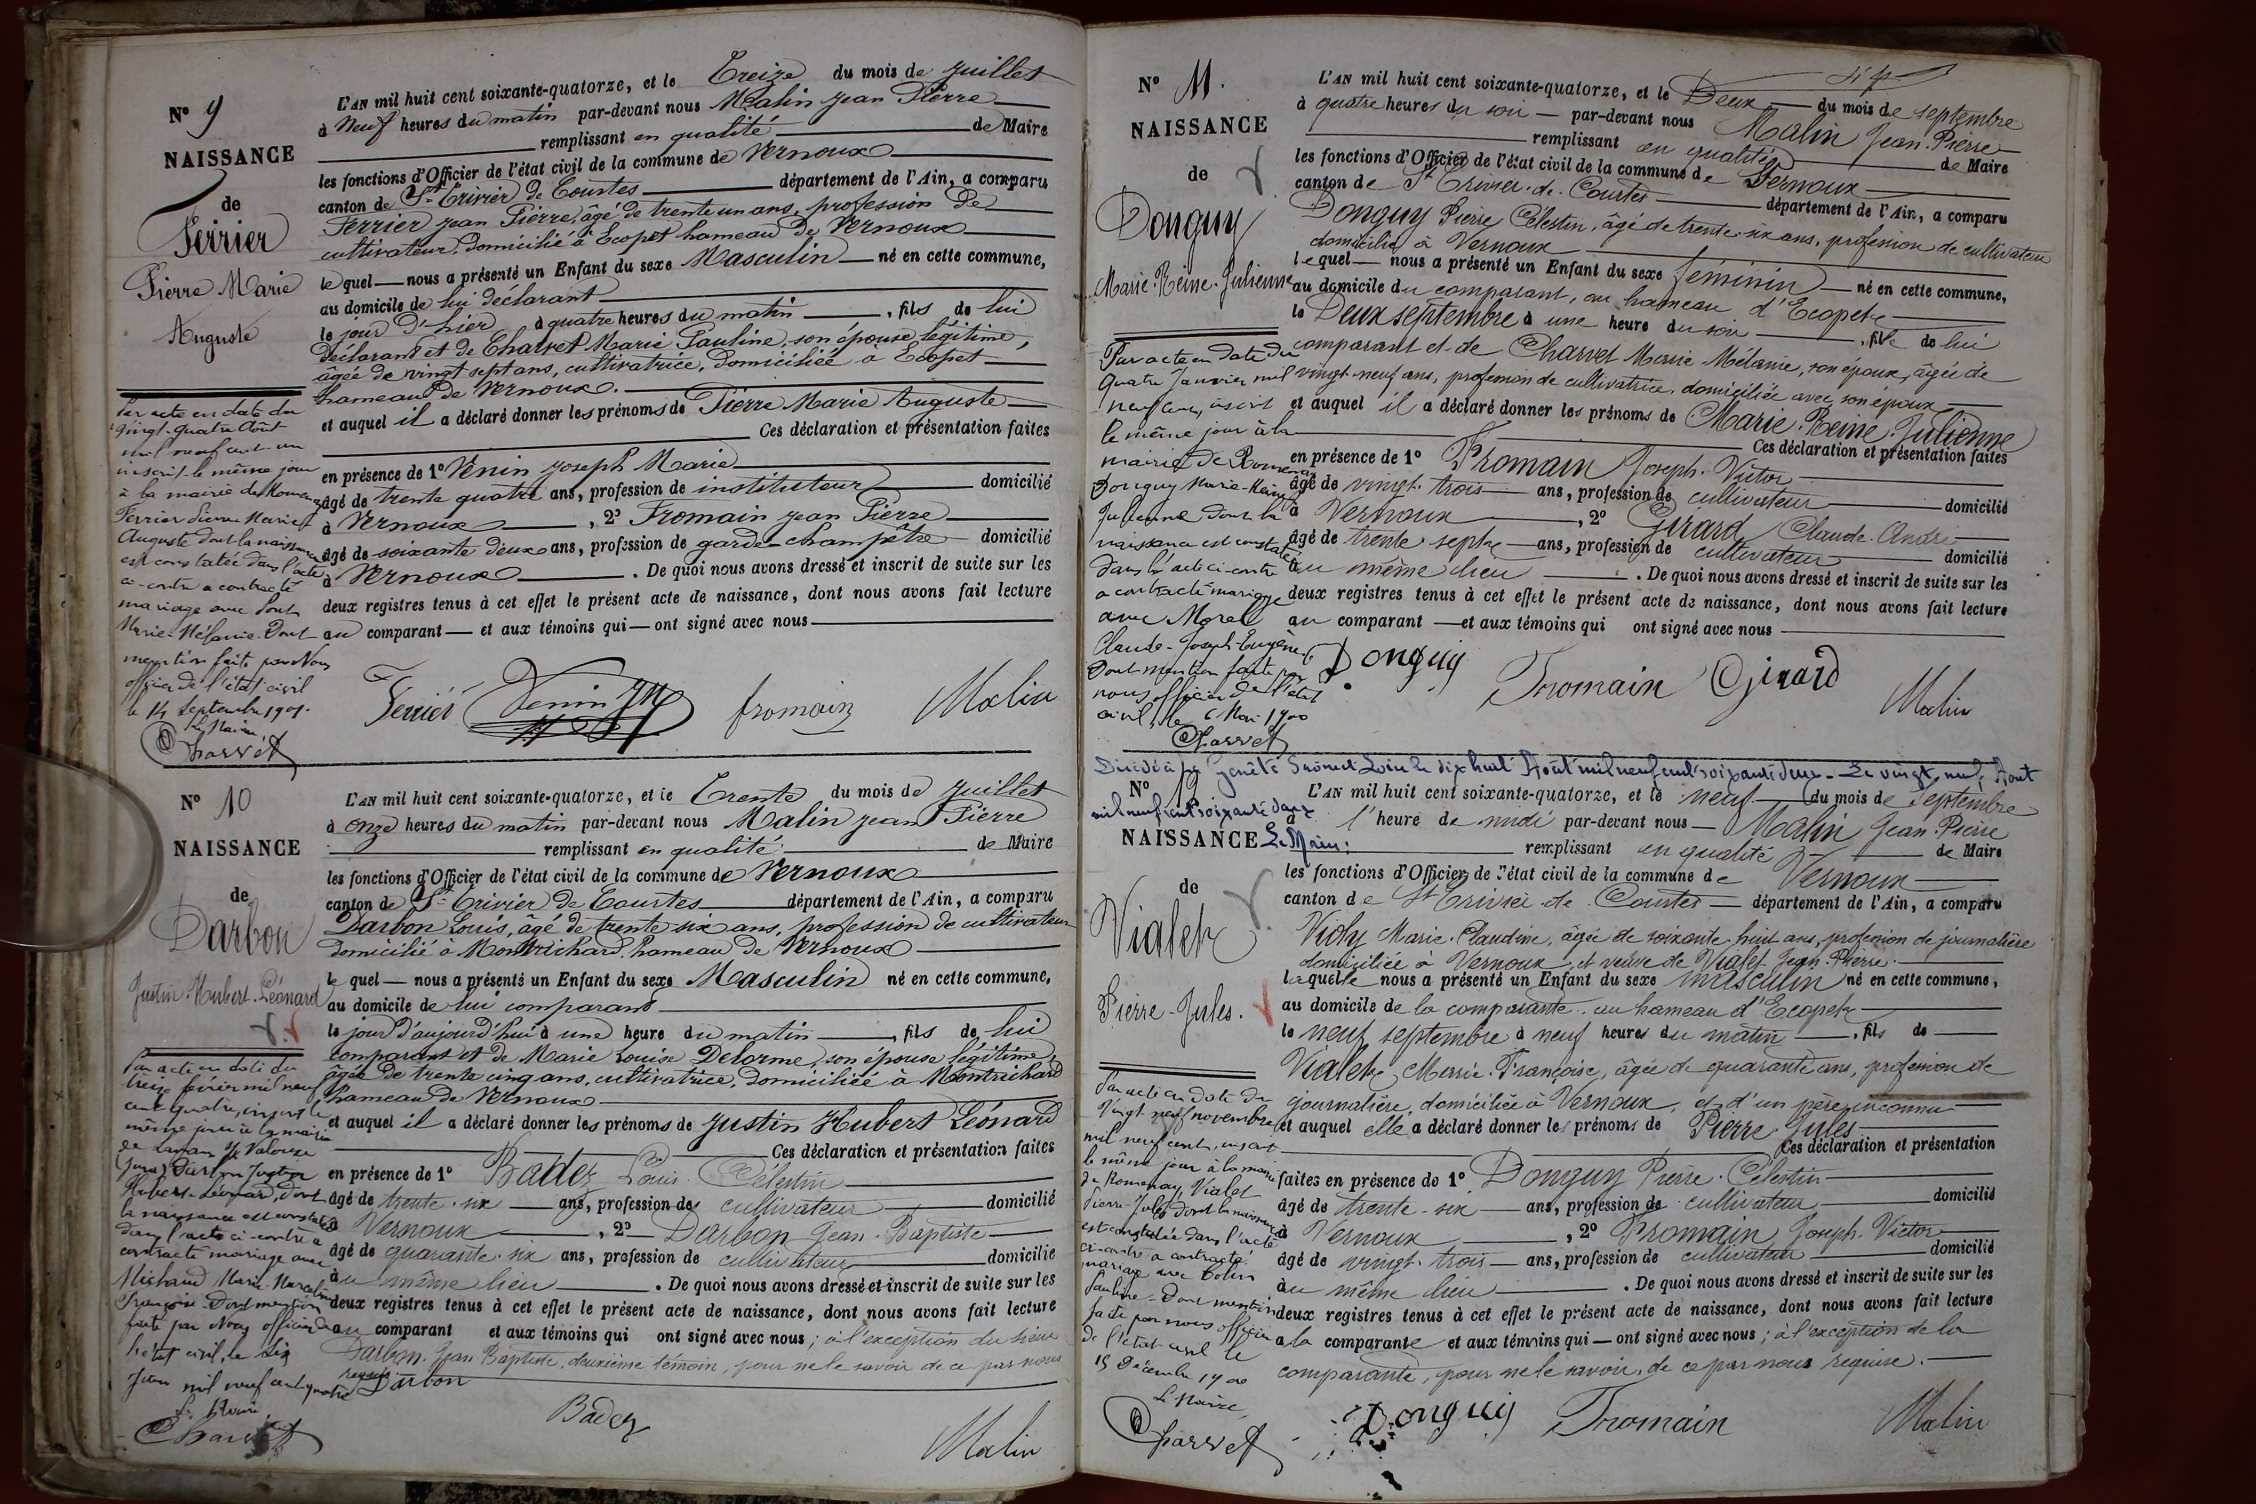 N° 9
NAISSANCE
de
Ferrier
Pierre Marie
Auguste
Par acte en date du
vingt-quatre Août
mil neuf cent un
inscrit le même jour
à la mairie de Romenay
Ferrier Pierre Marie
Auguste dont la naissance
est constatée dans l'acte
ci-contre a contracté
mariage avec
Marie-Mélanie. Dont
mention faite par Nous
officier de l'état civil
le 14 Septembre 1901.
Le Maire
Charvet
L'AN mil huit cent soixante-quatorze, et le Treize du mois de Juillet
à Neuf heures du matin par-devant nous Malin Jean Pierre
remplissant en qualité de Maire
les fonctions d'Officier de l'état civil de la commune de Vernoux
canton de St Trivier de Courtes département de l'Ain, a comparu
Ferrier Jean Pierre, âgé de trente un ans, profession de
cultivateur, domicilié à Ecopet hameau de Vernoux
le quel nous a présenté un Enfant du sexe Masculin né en cette commune,
au domicile de lui déclarant
le jour d'hier à quatre heures du matin, fils de lui
déclarant et de Charvet Marie Pauline, son épouse légitime,
âgée de vingt sept ans, cultivatrice, domiciliée à Ecopet
hameau de Vernoux.
et auquel il a déclaré donner les prénoms de Pierre Marie Auguste
Ces déclaration et présentation faites
en présence de 1° Venin Joseph Marie
âgé de trente quatre ans, profession de instituteur domicilié
à Vernoux, 2° Fromain Jean Pierre
âgé de soixante deux ans, profession de garde-champêtre domicilié
à Vernoux. De quoi nous avons dressé et inscrit de suite sur les
deux registres tenus à cet effet le présent acte de naissance, dont nous avons fait lecture
au comparant et aux témoins qui ont signé avec nous
Ferrier Venin JM fromain Malin
N° 10
NAISSANCE
de
Darbon
Justin-Hubert-Léonard
Par acte en date du
treize février mil neuf
cent quatre, inscrit le
même jour à la mairie
de
(Jura) Darbon Justin
Hubert-Léonard, dont
la naissance est constatée
dans l'acte ci-contre a
contracté mariage avec
Michaud Marie-Marceline
Françoise. Dont mention
faite par Nous officier de
l'état civil, le dix
Juin mil neuf cent quatre
Le Maire,
Charvet
L'AN mil huit cent soixante-quatorze, et le Trente du mois de Juillet
à onze heures du matin par-devant nous Malin Jean Pierre
remplissant en qualité de Maire
les fonctions d'Officier de l'état civil de la commune de Vernoux
canton de St Trivier de Courtes département de l'Ain, a comparu
Darbon Louis, âgé de trente six ans, profession de cultivateur
domicilié à Montrichard, hameau de Vernoux
le quel nous a présenté un Enfant du sexe Masculin né en cette commune,
au domicile de lui comparant
le jour d'aujourd'hui à une heure du matin, fils de lui
comparant et de Marie Louise Delorme, son épouse légitime,
âgée de trente cinq ans, cultivatrice, domiciliée à Montrichard
hameau de Vernoux
et auquel il a déclaré donner les prénoms de Justin Hubert Léonard
Ces déclaration et présentation faites
en présence de 1° Badez Louis Célestin
âgé de trente-six ans, profession de cultivateur domicilié
à Vernoux, 2° Darbon Jean-Baptiste
âgé de quarante-six ans, profession de cultivateur domicilié
au même lieu. De quoi nous avons dressé et inscrit de suite sur les
deux registres tenus à cet effet le présent acte de naissance, dont nous avons fait lecture
au comparant et aux témoins qui ont signé avec nous; à l'exception du sieur
Darbon Jean Baptiste, deuxième témoin, pour ne le savoir de ce par nous
requis Darbon
Badez
Malin
N° 11.
NAISSANCE
de
Donguy
Marie-Reine-Julienne
Par acte en date du
quatre Janvier mil
neuf cent, inscrit
le même jour à la
mairie de Romenay
Donguy Marie-Reine
Julienne dont la
naissance est constatée
dans l'acte ci-contre
a contracté mariage
avec Morel
Claude-Joseph-Eugène
Dont mention faite par
nous officier de l'état
civil, le 6 Mai 1900
Charvet
L'AN mil huit cent soixante-quatorze, et le Deux du mois de septembre
à quatre heures du soir par-devant nous Malin Jean-Pierre
remplissant en qualité de Maire
les fonctions d'Officier de l'état civil de la commune de Vernoux
canton de St Trivier-de-Courtes département de l'Ain, a comparu
Donguy Pierre Célestin, âgé de trente-six ans, profession de cultivateur
domicilié à Vernoux
le quel nous a présenté un Enfant du sexe féminin né en cette commune,
au domicile du comparant, au hameau d'Ecopet
le Deux septembre à une heure du soir, fille de lui
comparant et de Charvet Marie Mélanie, son épouse, âgée de
vingt-neuf ans, profession de cultivatrice, domiciliée avec son époux
et auquel il a déclaré donner les prénoms de Marie-Reine-Julienne
Ces déclaration et présentation faites
en présence de 1° Fromain Joseph-Victor
âgé de vingt-trois ans, profession de cultivateur domicilié
à Vernoux, 2° Girard Claude-André
âgé de trente-sept ans, profession de cultivateur domicilié
au même lieu. De quoi nous avons dressé et inscrit de suite sur les
deux registres tenus à cet effet le présent acte de naissance, dont nous avons fait lecture
au comparant et aux témoins qui ont signé avec nous
Donguy Fromain Girard Malin
Décédé à la Genête Saône et Loire le dix huit Août mil neuf cent soixante deux - Le vingt neuf Août
mil neuf cent soixante deux
Le Maire:
N° 12
NAISSANCE
de
Vialet
Pierre-Jules.
Par acte en date du
vingt neuf novembre
mil neuf cent, inscrit
le même jour à la mairie
de Romenay, Vialet
Pierre-Jules dont la naissance
est constatée dans l'acte
ci-contre a contracté
mariage avec
Pauline. Dont mention
faite par nous officier
de l'état civil le
15 Décembre 1900
Le Maire,
Charvet
L'AN mil huit cent soixante-quatorze, et le neuf du mois de septembre
à l'heure de midi par-devant nous Malin Jean-Pierre
remplissant en qualité de Maire
les fonctions d'Officier de l'état civil de la commune de Vernoux
canton de St Trivier-de-Courtes département de l'Ain, a comparu
Marie-Claudine, âgée de soixante-huit ans, profession de journalière
domiciliée à Vernoux, et veuve de Vialet Jean-Pierre.
laquelle nous a présenté un Enfant du sexe masculin né en cette commune,
au domicile de la comparante, au hameau d'Ecopet
le neuf septembre à neuf heures du matin, fils de
Vialet Marie-Françoise, âgée de quarante ans, profession de
journalière, domiciliée à Vernoux, et d'un père inconnu
et auquel elle a déclaré donner les prénoms de Pierre-Jules
Ces déclaration et présentation
faites en présence de 1° Donguy Pierre-Célestin
âgé de trente-six ans, profession de cultivateur domicilié
à Vernoux, 2° Fromain Joseph-Victor
âgé de vingt-trois ans, profession de cultivateur domicilié
au même lieu. De quoi nous avons dressé et inscrit de suite sur les
deux registres tenus à cet effet le présent acte de naissance, dont nous avons fait lecture
à la comparante et aux témoins qui ont signé avec nous; à l'exception de la
comparante, pour ne le savoir, de ce par nous requise.
Donguy Fromain Malin